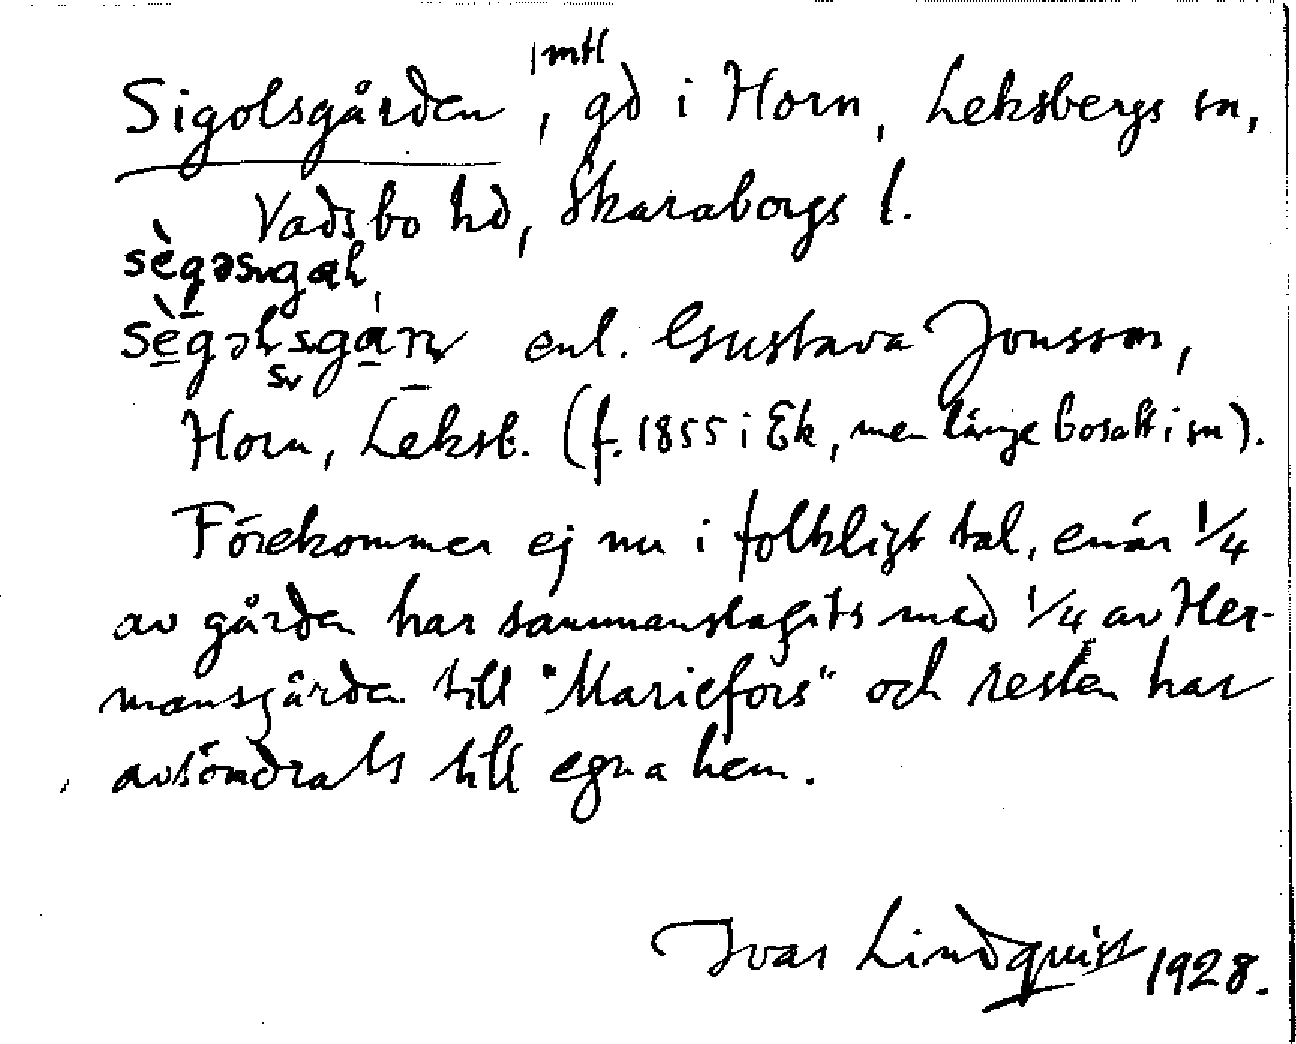 Sigolsgården, mtl, gd i Horn, Leksbergs sn,
Vadsbo hd, Skaraborgs l.
enl. Gustava Jonsson,
Horn, Leksb. (f. 1855 i Ek, men länge bosatt i sn).
Förekommer ej nu i folkligt tal, enär 1/4
av gården har sammanslagits med 1/4 av Her-
mansgården till "Mariefors" och resten har
avsöndrats till egna hem.
Ivar Lindquist 1928.